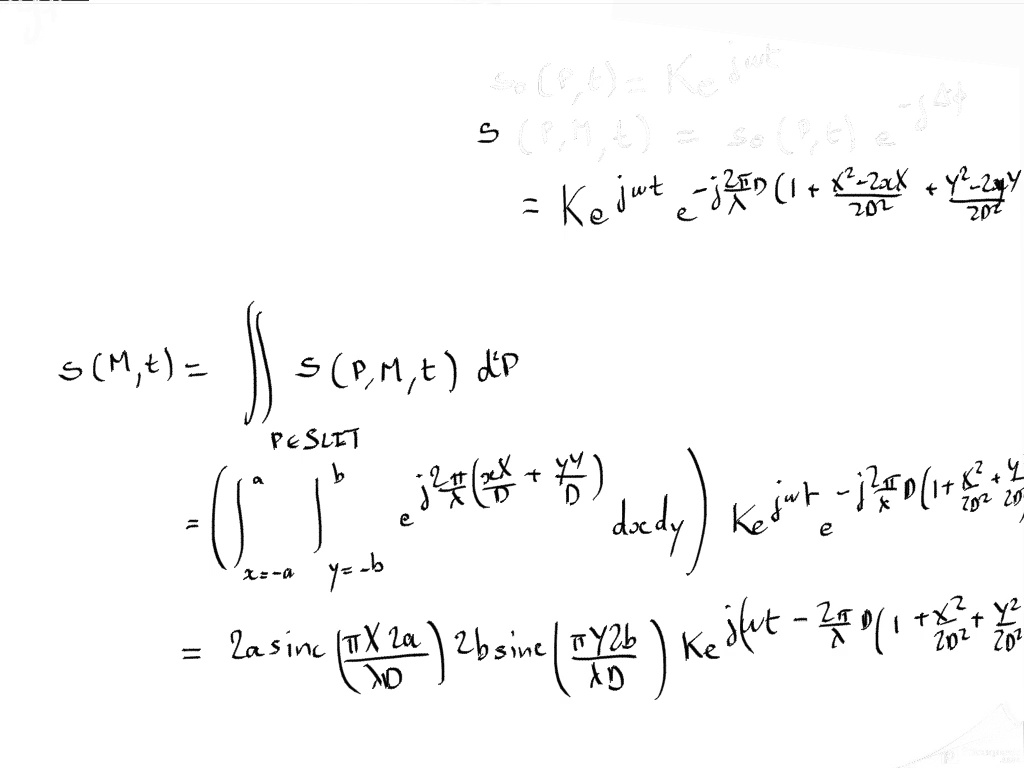 s₀(P,t) = Ke^{jωt}
s(P,M,t) = s₀(P,t) e^{-jΔϕ}
= Ke^{jωt} e^{-j\frac{2π}{λ}D(1 + \frac{X²-2xX}{2D²} + \frac{Y²-2yY}{2D²}}
s(M,t) = ∬_{P∈SLIT} s(P,M,t) d²P
= (∫_{x=-a}^{a} ∫_{y=-b}^{b} e^{j\frac{2π}{λ}(\frac{xX}{D} + \frac{yY}{D})} dxdy) Ke^{jωt} e^{-j\frac{2π}{λ}D(1+\frac{X²}{2D²}+\frac{Y²}{2D²}}
= 2a sinc(\frac{πX2a}{λD}) 2b sinc(\frac{πY2b}{λD}) Ke^{j(ωt - \frac{2π}{λ}D(1+\frac{X²}{2D²}+\frac{Y²}{2D²}}